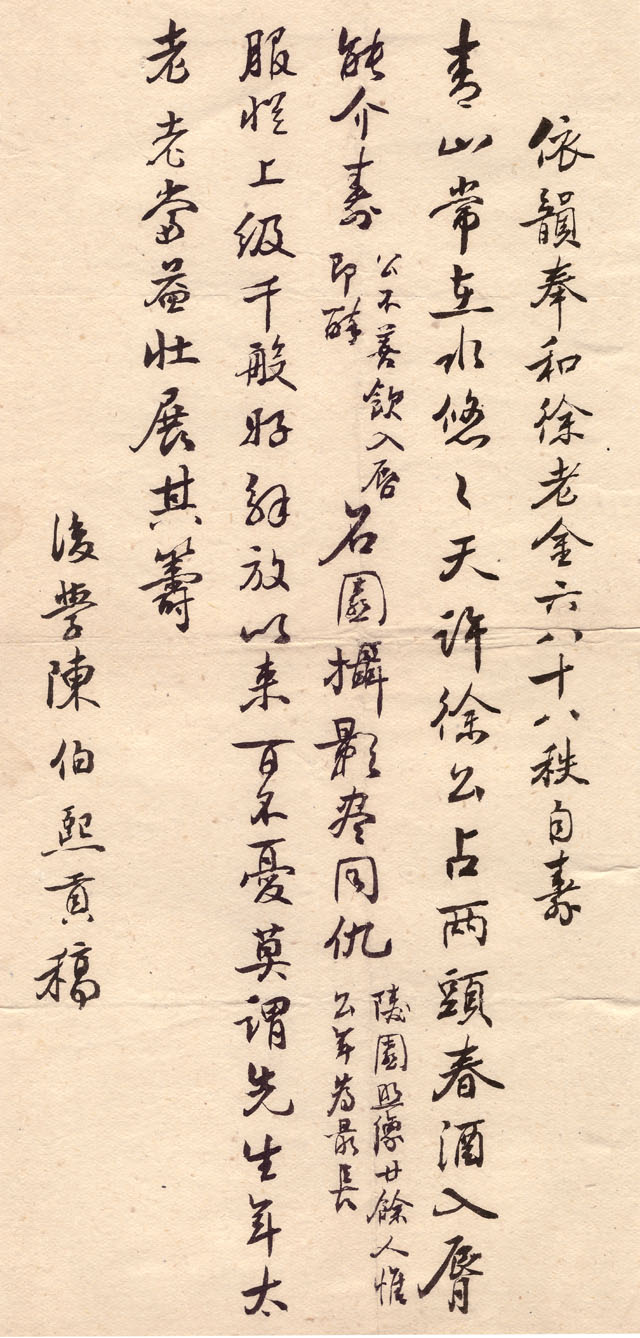 依韻奉和徐老金六八十八秩自壽
青山常在水悠〻天許徐公占两頭春酒入脣
能介壽
公不善飲入唇
即醉
名園攝影盡同仇
陵園照像廿餘人惟
公年為最長
服從上級千般好解放以来百不憂莫謂先生年太
老老當益壯展其籌
後學陳伯熙貢稿